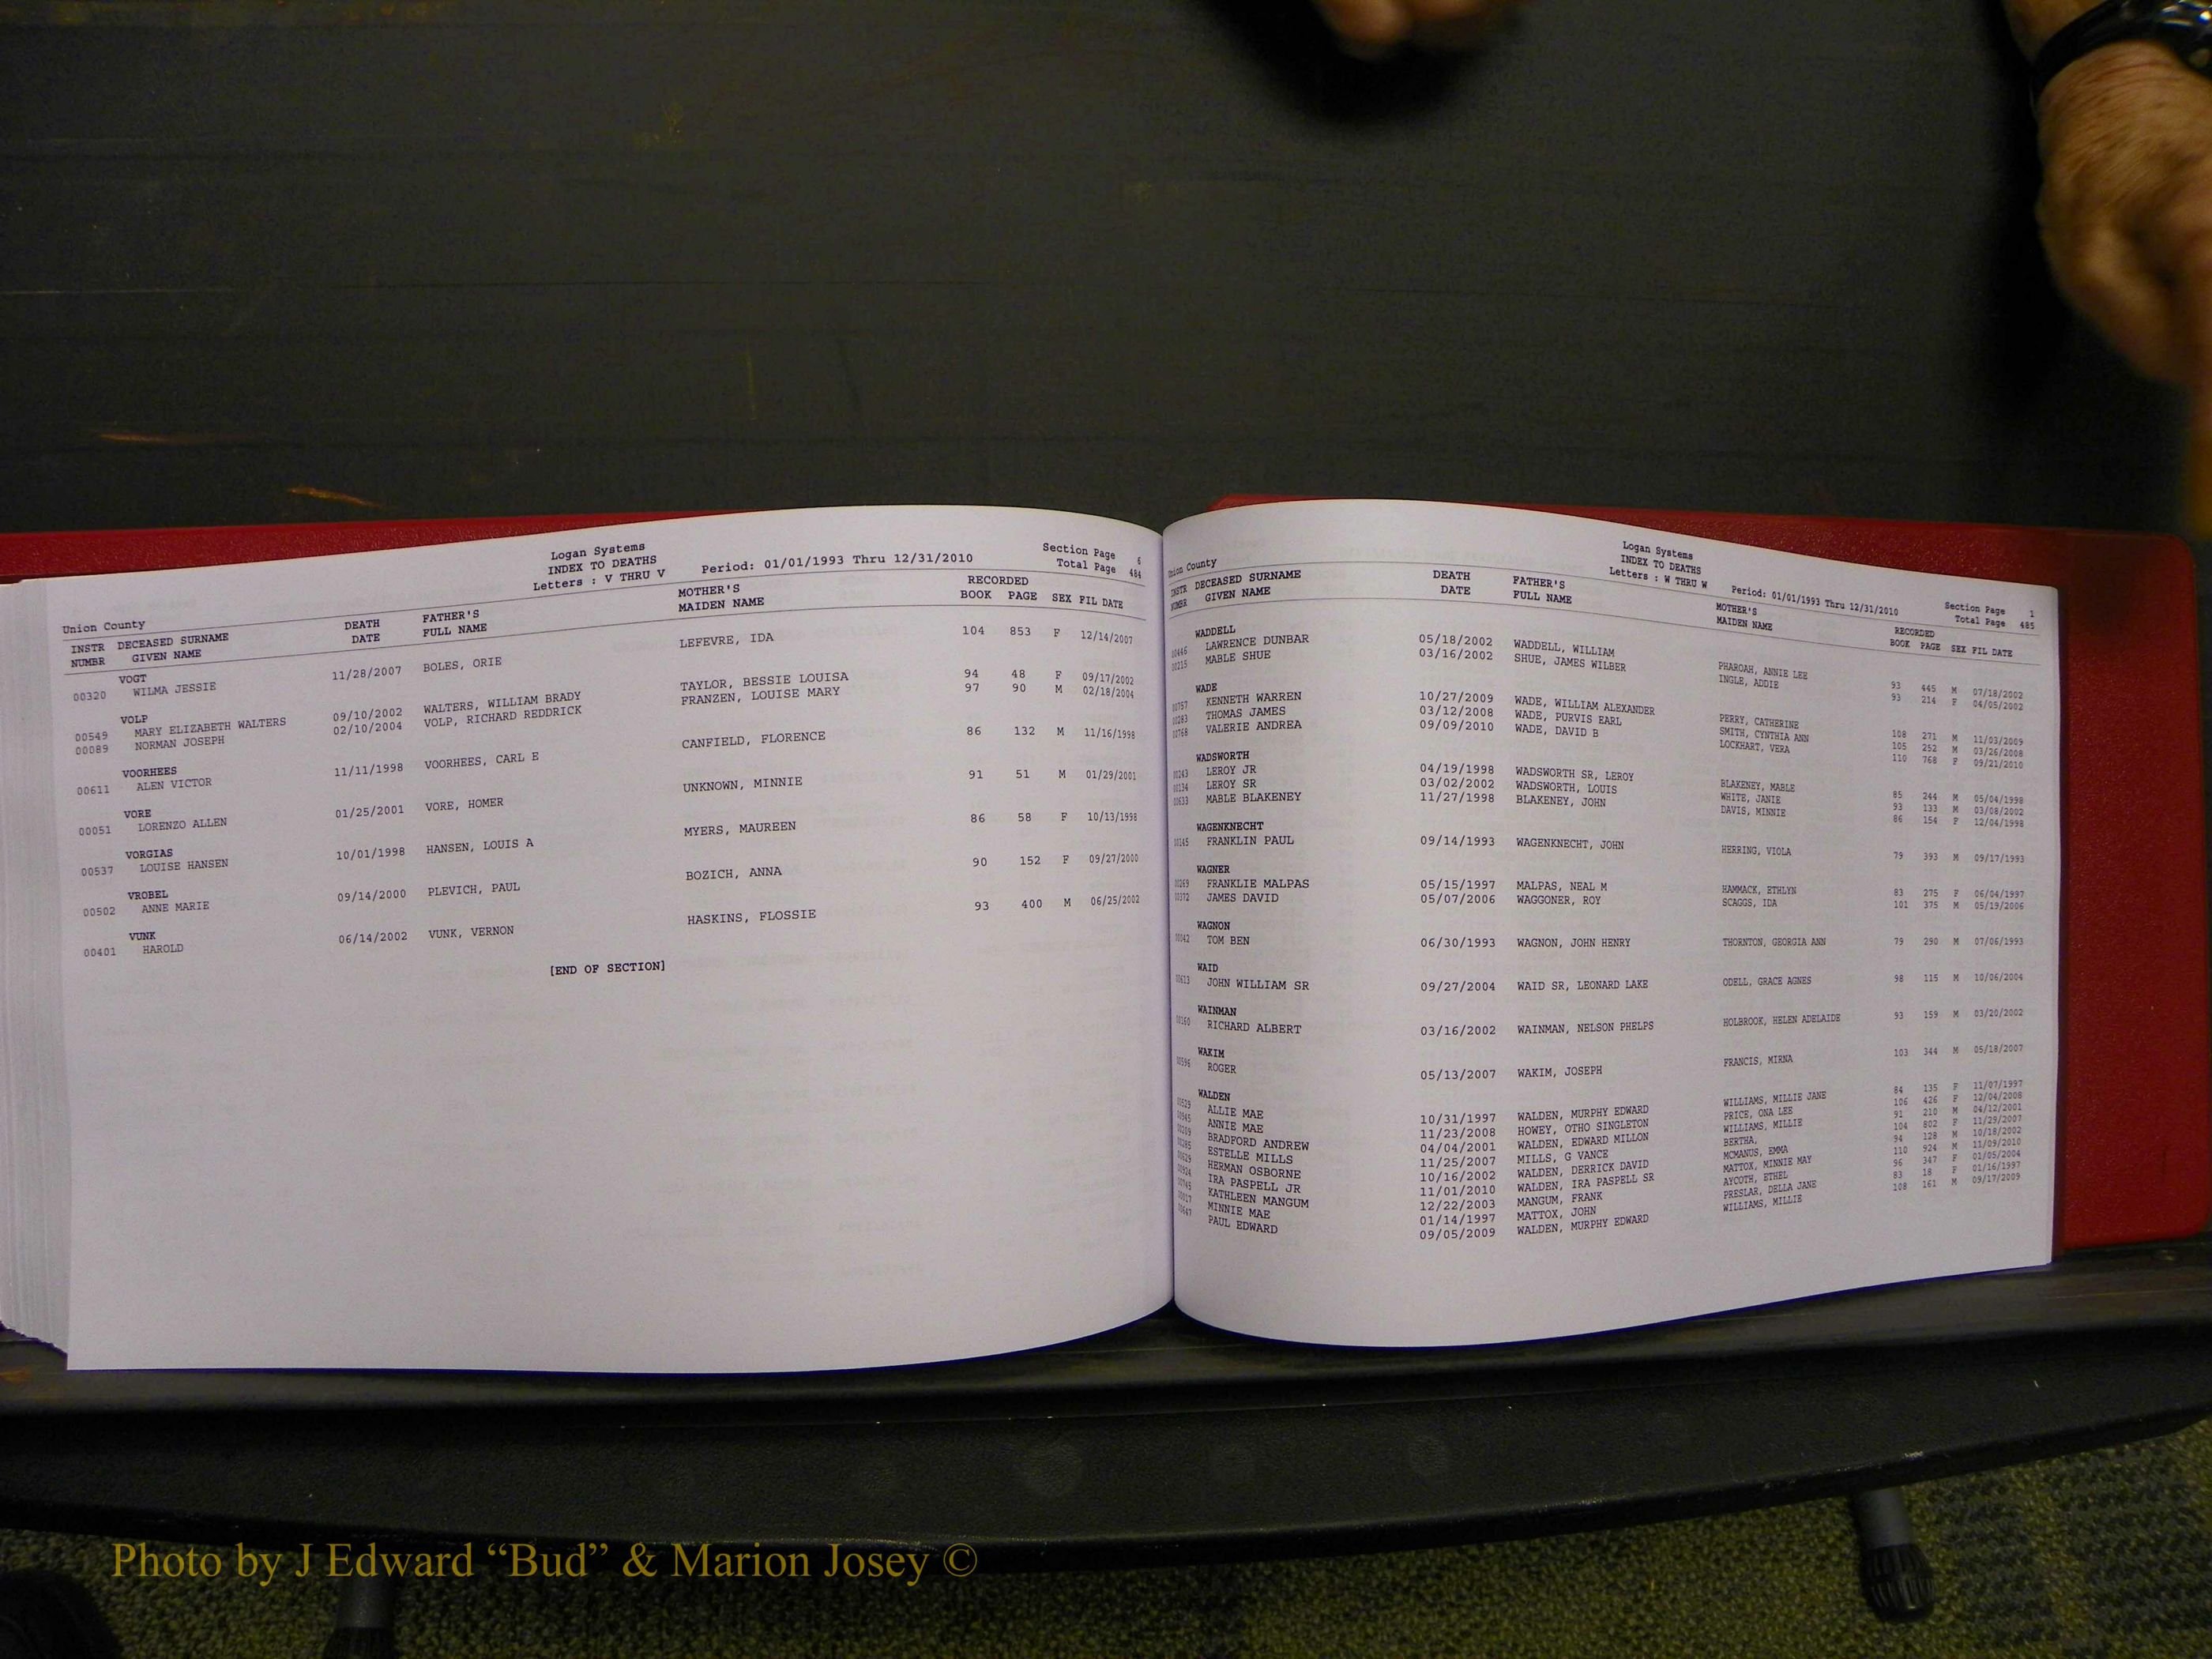 Logan Systems
INDEX TO DEATHS
Letters : V THRU V
Period: 01/01/1993 Thru 12/31/2010
Section Page 6
Total Page 484
Union County
INSTR DECEASED SURNAME DEATH FATHER'S MOTHER'S RECORDED
NUMBR GIVEN NAME DATE FULL NAME MAIDEN NAME BOOK PAGE SEX FIL DATE
VOGT
00320 WILMA JESSIE 11/28/2007 BOLES, ORIE LEFEVRE, IDA 104 853 F 12/14/2007
VOLP
00549 MARY ELIZABETH WALTERS 09/10/2002 WALTERS, WILLIAM BRADY TAYLOR, BESSIE LOUISA 94 48 F 09/17/2002
00089 NORMAN JOSEPH 02/10/2004 VOLP, RICHARD REDDRICK FRANZEN, LOUISE MARY 97 90 M 02/18/2004
VOORHEES
00611 ALEN VICTOR 11/11/1998 VOORHEES, CARL E CANFIELD, FLORENCE 86 132 M 11/16/1998
VORE
00051 LORENZO ALLEN 01/25/2001 VORE, HOMER UNKNOWN, MINNIE 91 51 M 01/29/2001
VORGIAS
00537 LOUISE HANSEN 10/01/1998 HANSEN, LOUIS A MYERS, MAUREEN 86 58 F 10/13/1998
VROBEL
00502 ANNE MARIE 09/14/2000 PLEVICH, PAUL BOZICH, ANNA 90 152 F 09/27/2000
VUNK
00401 HAROLD 06/14/2002 VUNK, VERNON HASKINS, FLOSSIE 93 400 M 06/25/2002
[END OF SECTION]
Logan Systems
INDEX TO DEATHS
Letters : W THRU W
Period: 01/01/1993 Thru 12/31/2010
Section Page 1
Total Page 485
Union County
INSTR DECEASED SURNAME DEATH FATHER'S MOTHER'S RECORDED
NUMBR GIVEN NAME DATE FULL NAME MAIDEN NAME BOOK PAGE SEX FIL DATE
WADDELL
LAWRENCE DUNBAR 05/18/2002 WADDELL, WILLIAM PHAROAH, ANNIE LEE 93 445 M 07/18/2002
MABLE SHUE 03/16/2002 SHUE, JAMES WILBER INGLE, ADDIE 93 214 F 04/05/2002
WADE
KENNETH WARREN 10/27/2009 WADE, WILLIAM ALEXANDER PERRY, CATHERINE 108 271 M 11/03/2009
THOMAS JAMES 03/12/2008 WADE, PURVIS EARL SMITH, CYNTHIA ANN 105 252 M 03/26/2008
VALERIE ANDREA 09/09/2010 WADE, DAVID B LOCKHART, VERA 110 768 F 09/21/2010
WADSWORTH
LEROY JR 04/19/1998 WADSWORTH SR, LEROY BLAKENEY, MABLE 85 244 M 05/04/1998
LEROY SR 03/02/2002 WADSWORTH, LOUIS WHITE, JANIE 93 133 M 03/08/2002
MABLE BLAKENEY 11/27/1998 BLAKENEY, JOHN DAVIS, MINNIE 86 154 F 12/04/1998
WAGENKNECHT
FRANKLIN PAUL 09/14/1993 WAGENKNECHT, JOHN HERRING, VIOLA 79 393 M 09/17/1993
WAGNER
FRANKLIE MALPAS 05/15/1997 MALPAS, NEAL M HAMMACK, ETHLYN 83 275 F 06/04/1997
JAMES DAVID 05/07/2006 WAGGONER, ROY SCAGGS, IDA 101 375 M 05/19/2006
WAGNON
TOM BEN 06/30/1993 WAGNON, JOHN HENRY THORNTON, GEORGIA ANN 79 290 M 07/06/1993
WAID
JOHN WILLIAM SR 09/27/2004 WAID SR, LEONARD LAKE ODELL, GRACE AGNES 98 115 M 10/06/2004
WAINMAN
RICHARD ALBERT 03/16/2002 WAINMAN, NELSON PHELPS HOLBROOK, HELEN ADELAIDE 93 159 M 03/20/2002
WAKIM
ROGER 05/13/2007 WAKIM, JOSEPH FRANCIS, MIRNA 103 344 M 05/18/2007
WALDEN
ALLIE MAE 10/31/1997 WALDEN, MURPHY EDWARD WILLIAMS, MILLIE JANE 84 135 F 11/07/1997
ANNIE MAE 11/23/2008 HOWEY, OTHO SINGLETON PRICE, ONA LEE 106 426 F 12/04/2008
BRADFORD ANDREW 04/04/2001 WALDEN, EDWARD MILLON WILLIAMS, MILLIE 91 210 M 04/12/2001
ESTELLE MILLS 11/25/2007 MILLS, G VANCE BERTHA, 104 802 F 11/29/2007
HERMAN OSBORNE 10/16/2002 WALDEN, DERRICK DAVID MCMANUS, EMMA 94 128 M 10/18/2002
IRA PASPELL JR 11/01/2010 WALDEN, IRA PASPELL SR MATTOX, MINNIE MAY 110 924 M 11/09/2010
KATHLEEN MANGUM 12/22/2003 MANGUM, FRANK AYCOTH, ETHEL 96 347 F 01/05/2004
MINNIE MAE 01/14/1997 MATTOX, JOHN PRESLAR, DELLA JANE 83 18 F 01/16/1997
PAUL EDWARD 09/05/2009 WALDEN, MURPHY EDWARD WILLIAMS, MILLIE 108 161 M 09/17/2009
Photo by J Edward “Bud” & Marion Josey ©